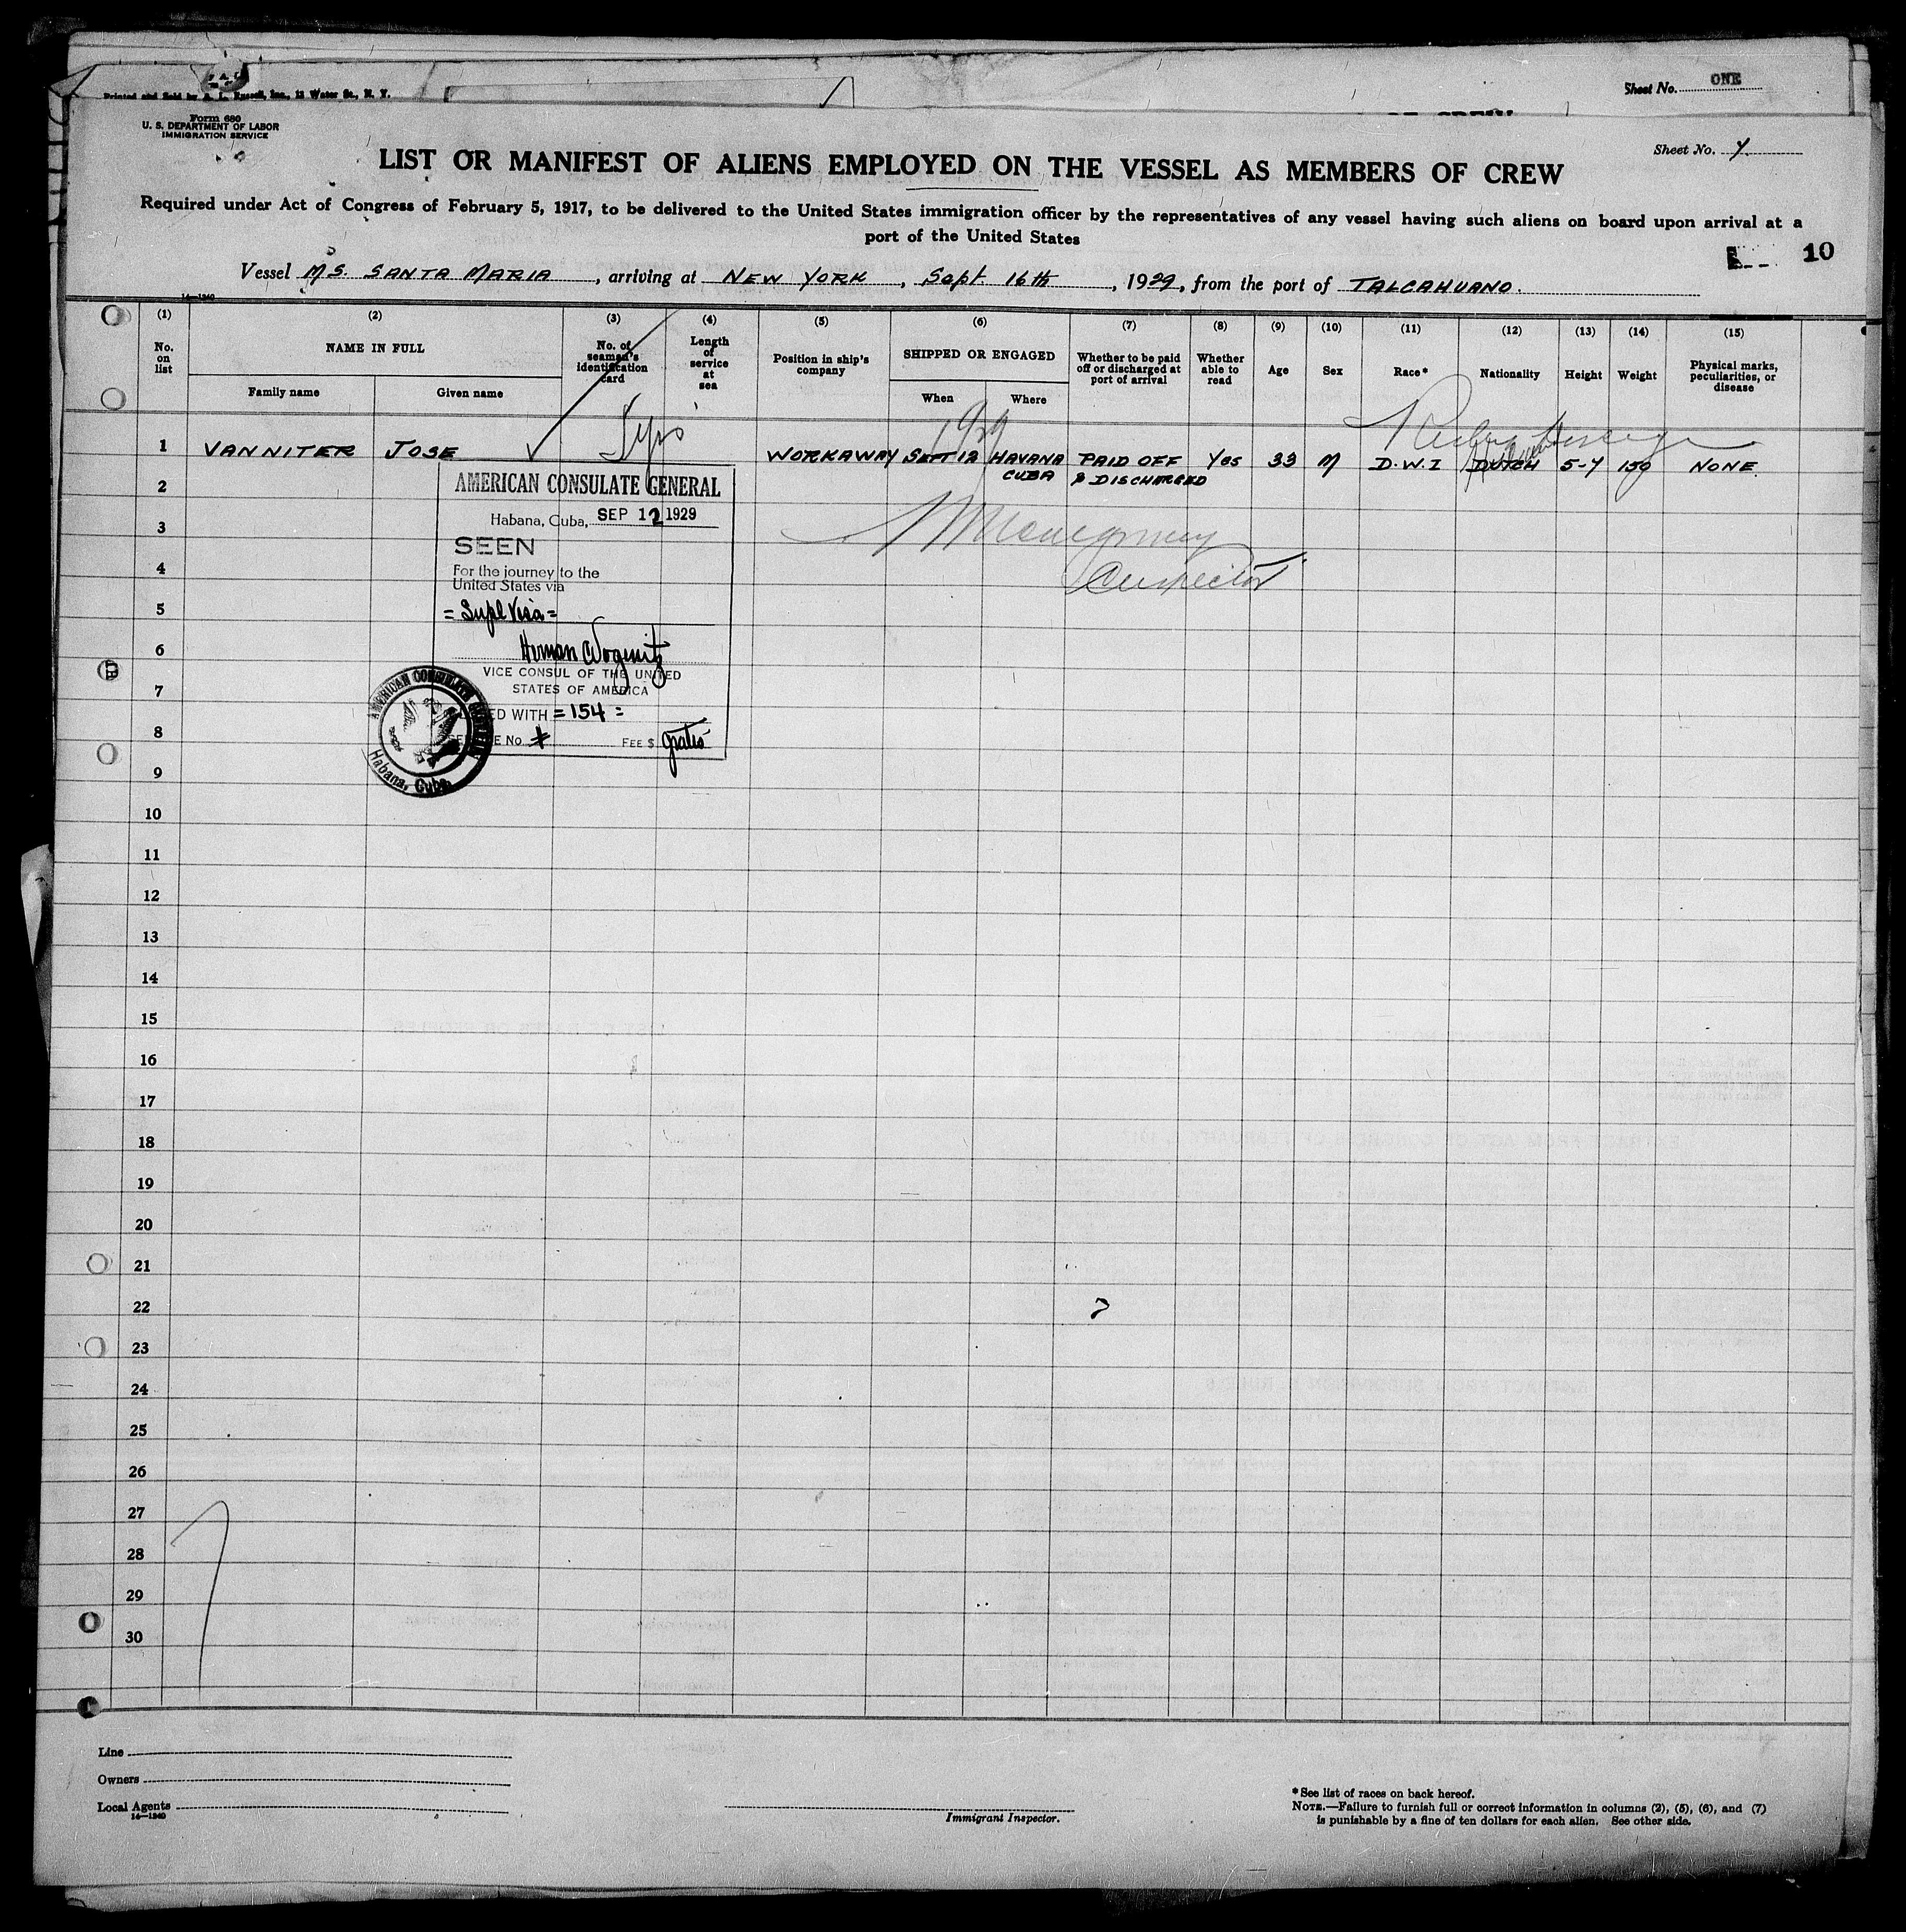 Printed and Sold by A. L. Russell, Inc., 12 Water St., N. Y.
Sheet No. ONE
Form 680
U. S. DEPARTMENT OF LABOR
IMMIGRATION SERVICE
Sheet No. Y.
LIST OR MANIFEST OF ALIENS EMPLOYED ON THE VESSEL AS MEMBERS OF CREW
Required under Act of Congress of February 5, 1917, to be delivered to the United States immigration officer by the representatives of any vessel having such aliens on board upon arrival at a
port of the United States
10
Vessel M.S. SANTA MARIA, arriving at NEW YORK, Sept. 16th, 1929, from the port of TALCAHUANO.
14—1240
(1) (2) (3) (4) (5) (6) (7) (8) (9) (10) (11) (12) (13) (14) (15)
No. on list
NAME IN FULL
Family name
Given name
No. of seaman's identification card
Length of service at sea
Position in ship's company
SHIPPED OR ENGAGED
When
Where
Whether to be paid off or discharged at port of arrival
Whether able to read
Age
Sex
Race*
Nationality
Height
Weight
Physical marks, peculiarities, or disease
1929
1 VAN NITER JOSE WORKAWAY SEPT 12 HAVANA CUBA PAID OFF & DISCHARGED Yes 33 M D.W.I DUTCH 5-4 150 NONE
2
3
4
5
6
7
8
9
10
11
12
13
14
15
16
17
18
19
20
21
22
23
24
25
26
27
28
29
30
AMERICAN CONSULATE GENERAL
Habana, Cuba, SEP 12 1929
SEEN
For the journey to the
United States via
= Supl Visa =
VICE CONSUL OF THE UNITED
STATES OF AMERICA
ED WITH = 154 =
E No. FEE $ gratis
AMERICAN CONSULATE GENERAL
Habana, Cuba
Montgomery
Inspector
Line
Owners
Local Agents
14—1240
Immigrant Inspector.
*See list of races on back hereof.
NOTE.—Failure to furnish full or correct information in columns (2), (5), (6), and (7)
is punishable by a fine of ten dollars for each alien. See other side.